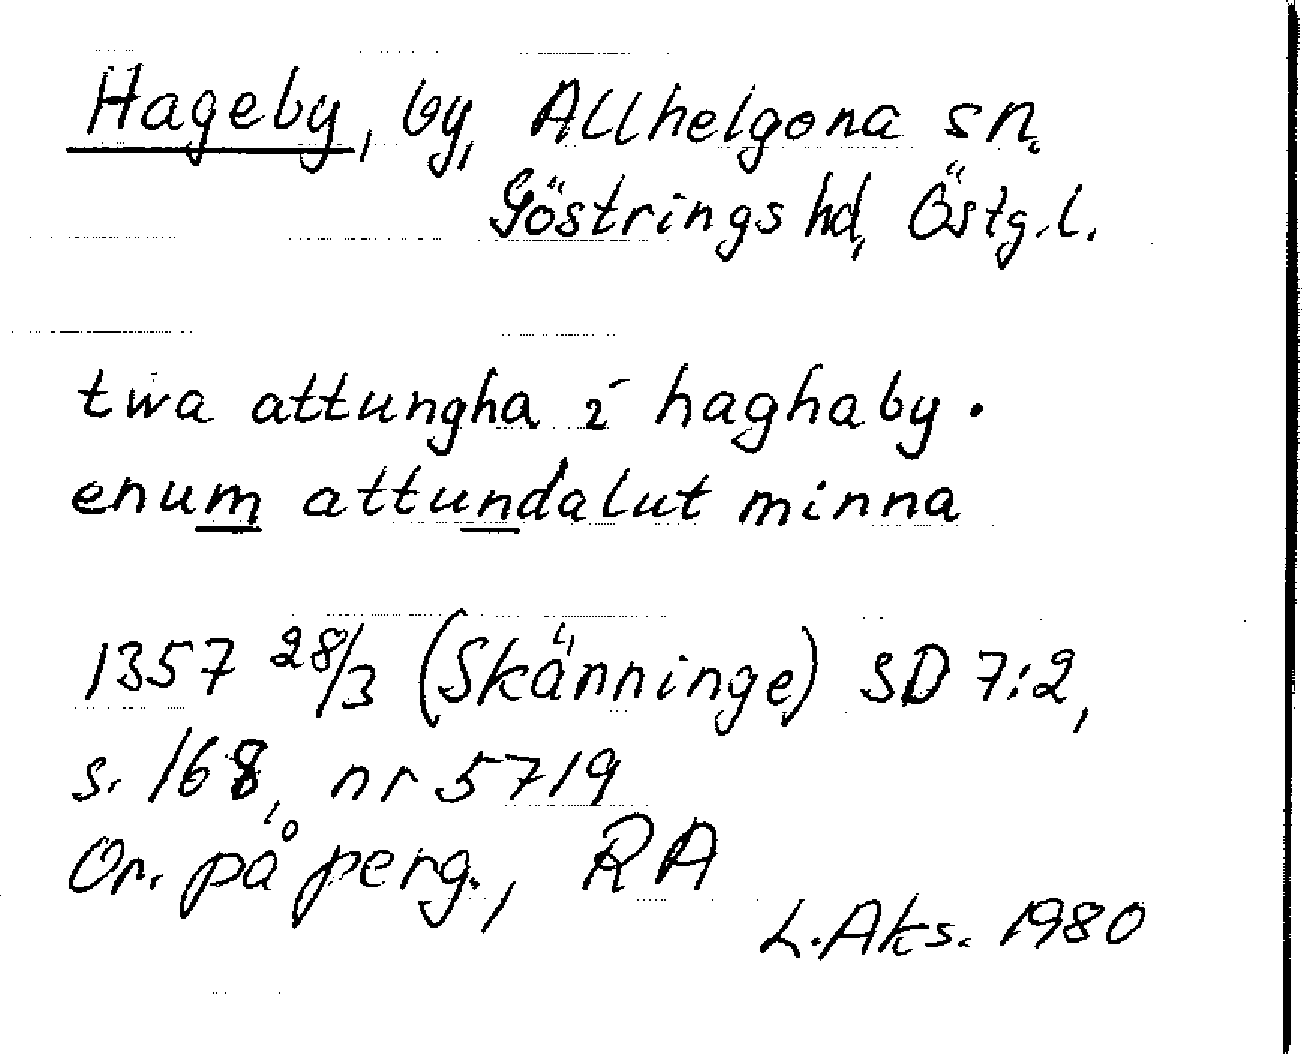 Hageby, by, Allhelgona sn.
Göstrings hd, Östg.l.
twa attungha i haghaby.
enum attundalut minna
1357 28/3 (Skänninge) SD 7:2,
s. 168, nr 5719
Or. på perg., RA
L. Aks. 1980